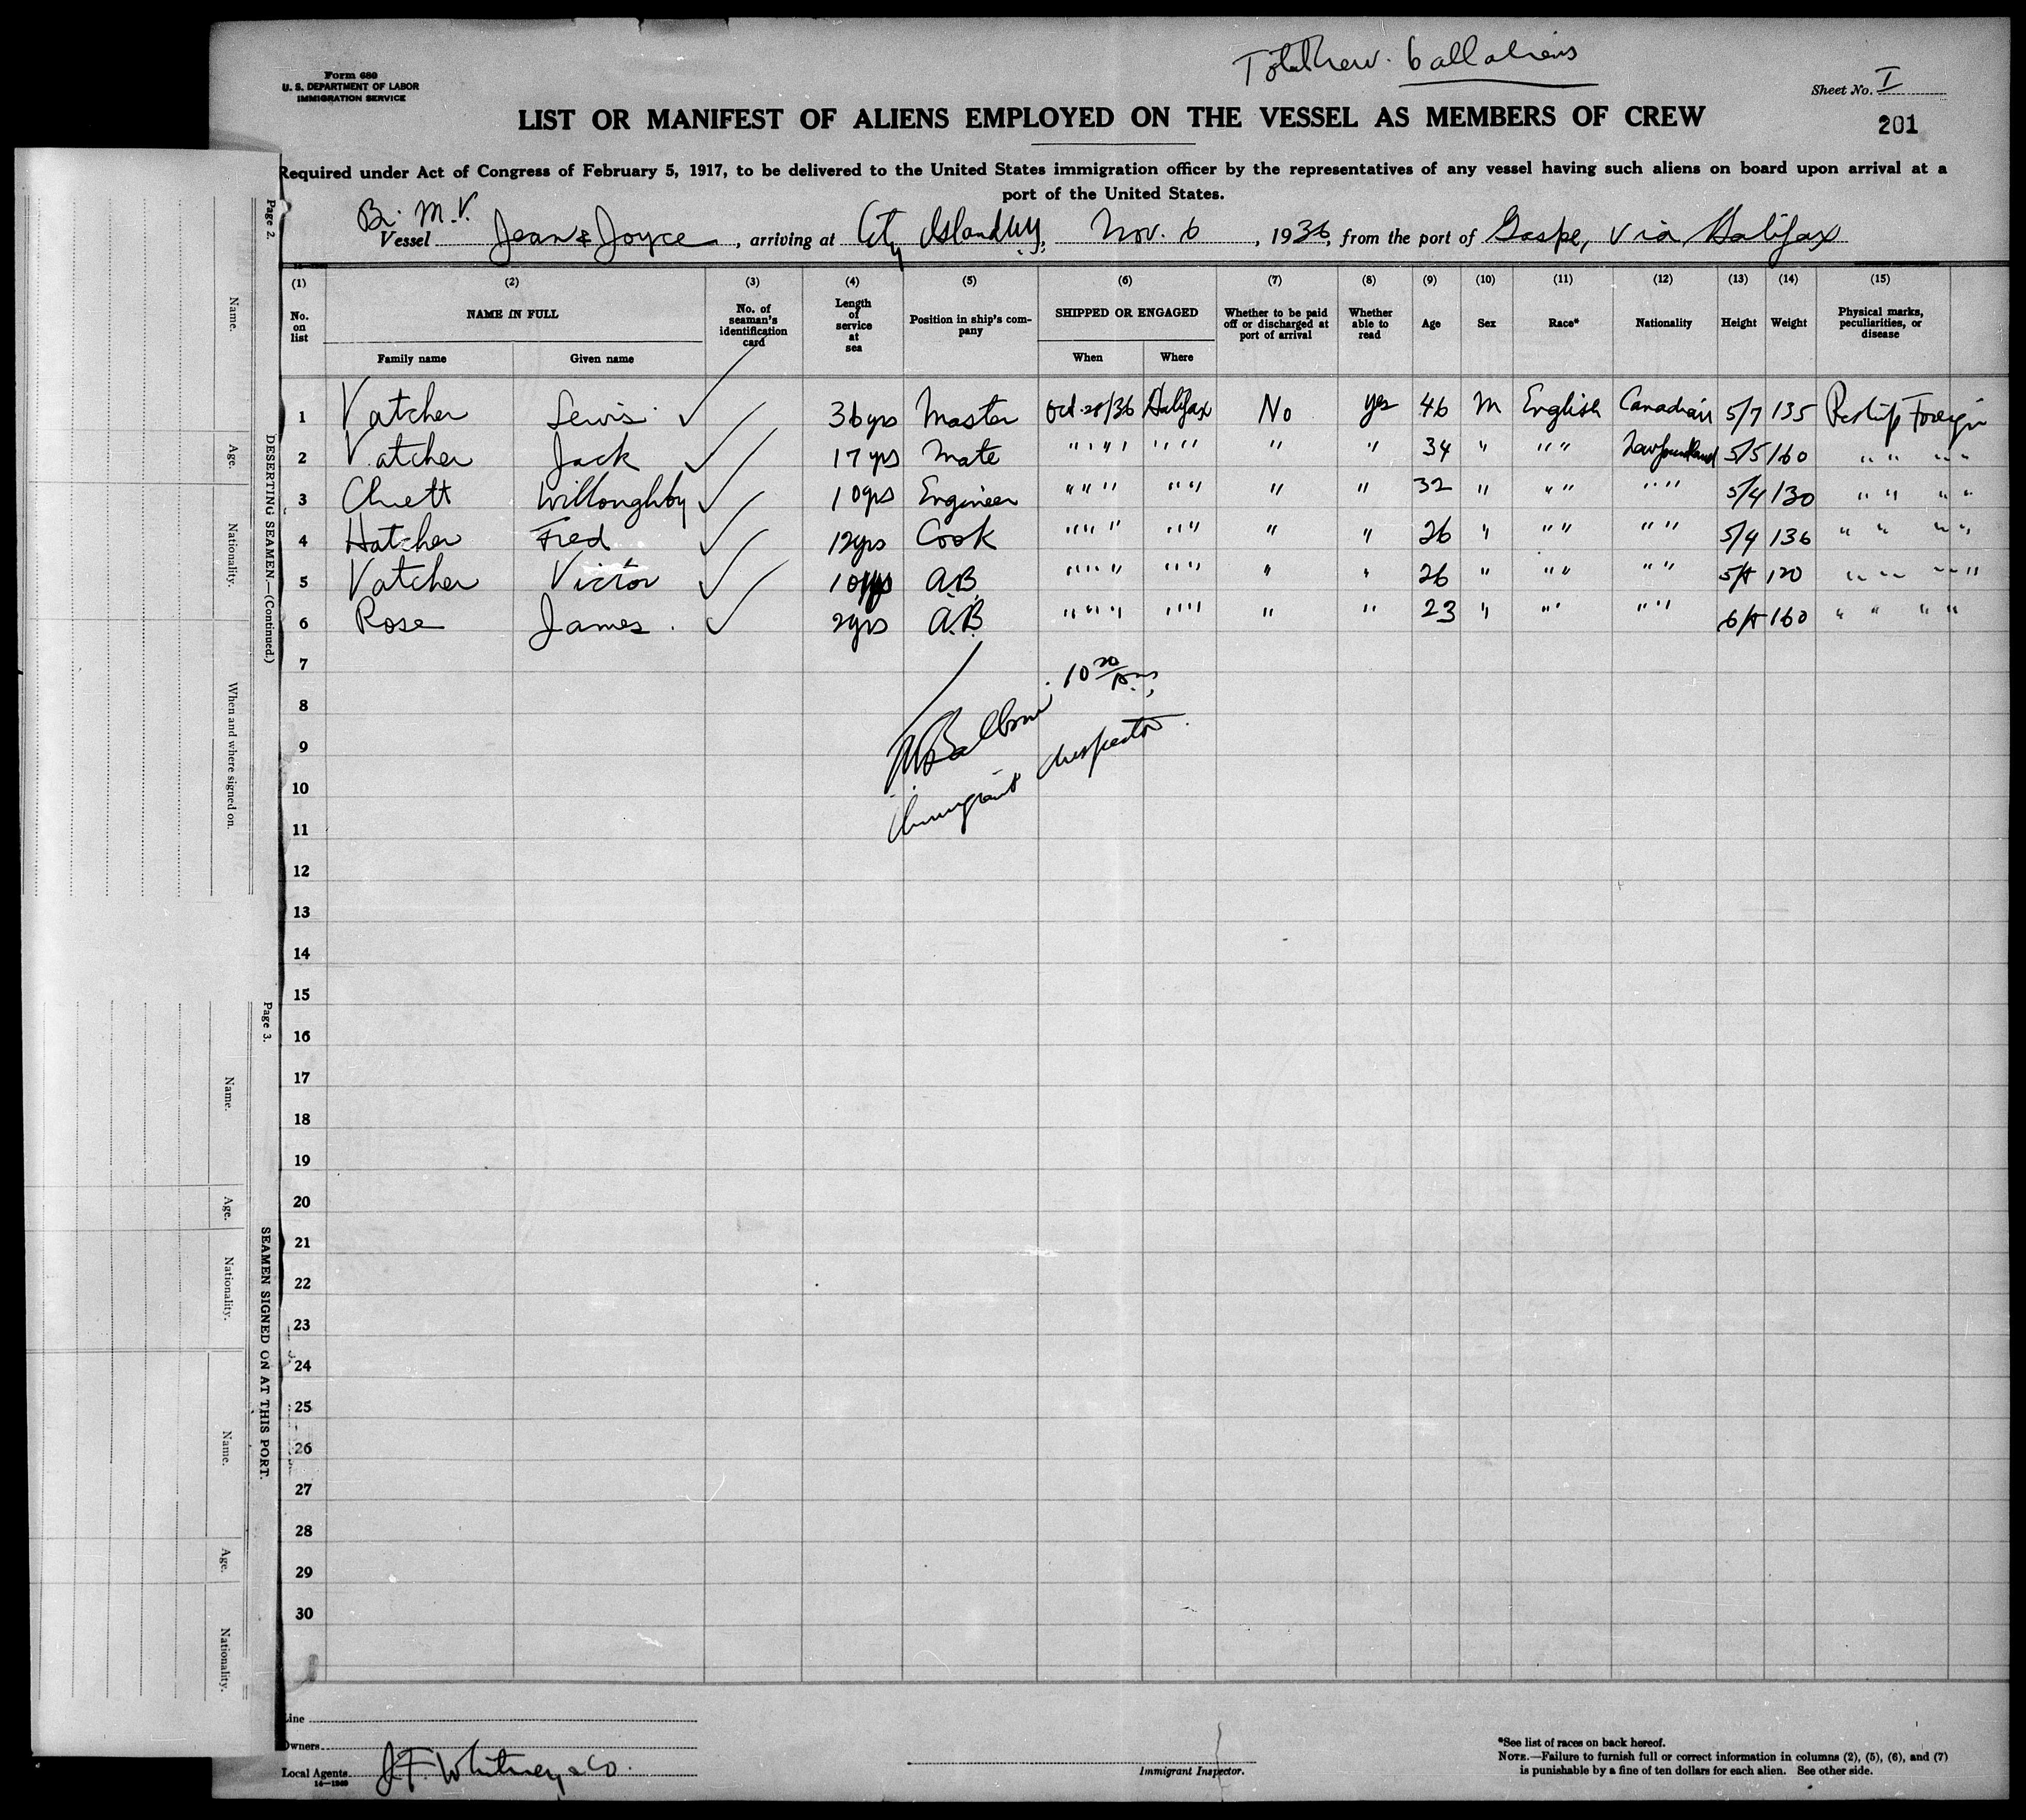 Total Crew. 6 all aliens
Form 680
U. S. DEPARTMENT OF LABOR
IMMIGRATION SERVICE
Sheet No. I
LIST OR MANIFEST OF ALIENS EMPLOYED ON THE VESSEL AS MEMBERS OF CREW
201
Required under Act of Congress of February 5, 1917, to be delivered to the United States immigration officer by the representatives of any vessel having such aliens on board upon arrival at a
port of the United States.
Br. M.V.
Vessel Jean & Joyce, arriving at City Island NY, Nov. 6, 1936, from the port of Gaspe, via Halifax
(1) (2) (3) (4) (5) (6) (7) (8) (9) (10) (11) (12) (13) (14) (15)
No. on list NAME IN FULL Family name Given name No. of seaman's identification card Length of service at sea Position in ship's company SHIPPED OR ENGAGED When Where Whether to be paid off or discharged at port of arrival Whether able to read Age Sex Race* Nationality Height Weight Physical marks, peculiarities, or disease
1 Vatcher Lewis ✓ 36 yrs Master Oct. 28/36 Halifax No yes 46 M English Canadian 5/7 135 Foreign
2 Vatcher Jack ✓ 17 yrs Mate " " " " " " " " " " 34 " " " Newfoundland 5/5 160 " " " "
3 Willoughby ✓ 10 yrs Engineer " " " " " " " " " " 32 " " " " " " 5/4 130 " " " "
4 Hatcher Fred ✓ 12 yrs Cook " " " " " " " " " " 26 " " " " " " 5/4 136 " " " "
5 Vatcher Victor ✓ 10 yrs A.B. " " " " " " " " " " 26 " " " " " 120 " " " "
6 Rose James ✓ 2 yrs A.B. " " " " " " " " " " 23 " " " " " " 160 " " " "
7
8
9
10
11
12
13
14
15
16
17
18
19
20
21
22
23
24
25
26
27
28
29
30
10 20
Immigrant Inspector
Line
Owners
Local Agents J.F. Whitney & Co.
14—1969
Immigrant Inspector.
*See list of races on back hereof.
NOTE.—Failure to furnish full or correct information in columns (2), (5), (6), and (7)
is punishable by a fine of ten dollars for each alien. See other side.
Page 2.
DESERTING SEAMEN.—(Continued.)
Name.
Age.
Nationality.
When and where signed on.
Page 3.
SEAMEN SIGNED ON AT THIS PORT.
Name.
Age.
Nationality.
Name.
Age.
Nationality.